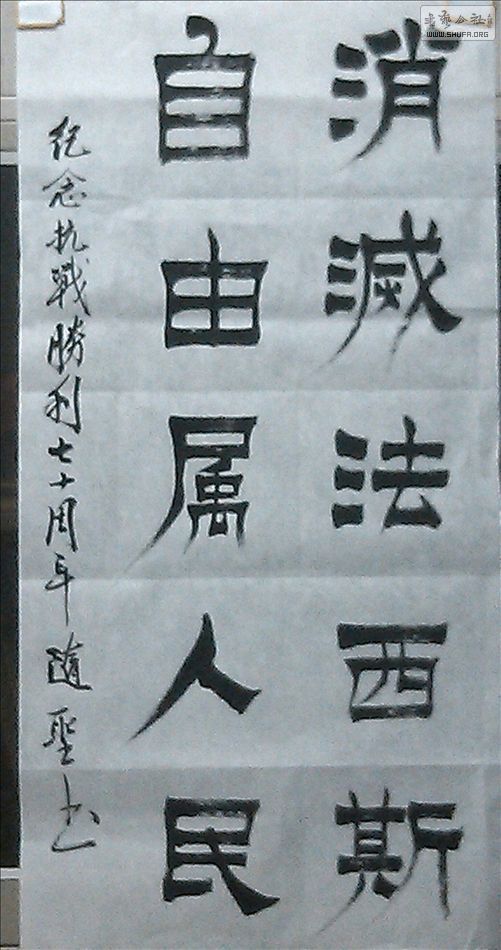 消滅法西斯
自由属人民
紀念抗戰勝利七十周年 隨聖书
WWW.SHUFA.ORG